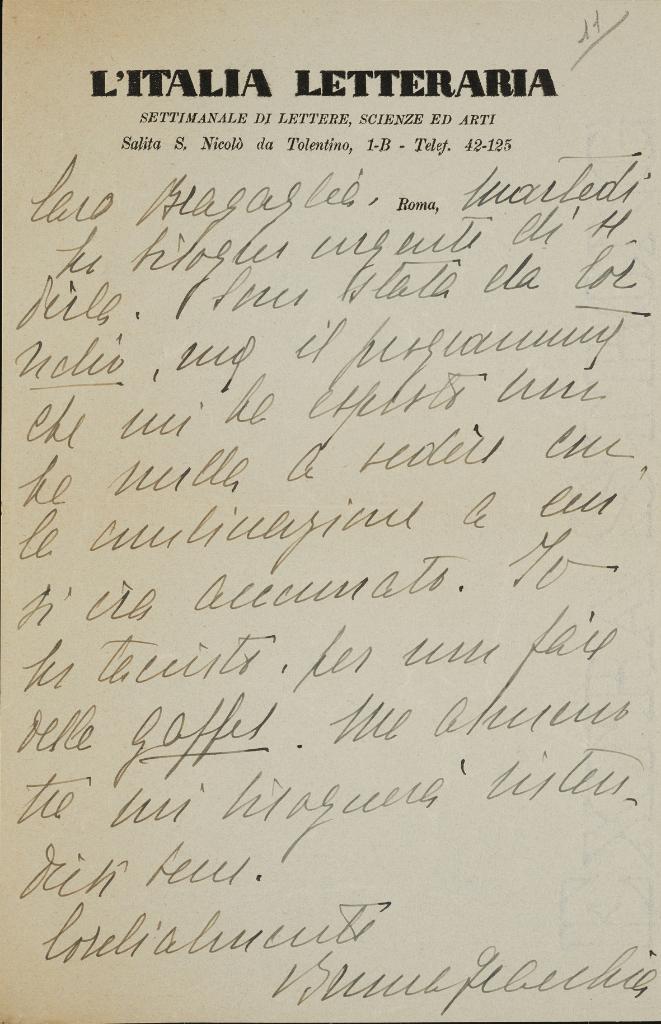 11
L'ITALIA LETTERARIA
SETTIMANALE DI LETTERE, SCIENZE ED ARTI
Salita S. Nicolò da Tolentino, 1-B - Telef. 42-125
Caro Bragaglia. Roma, Martedì
ho bisogno urgente di ve
derla. Sono stata da Cor
radio, ma il programma
che mi ha esposto non
ha nulla a vedere con
la combinazione a cui
si era accennato. Io
ho taciuto. per non fare
delle gaffes. Ma almeno
tré mi bisognerà inten,
derci bene.
Cordialmente
Bruna